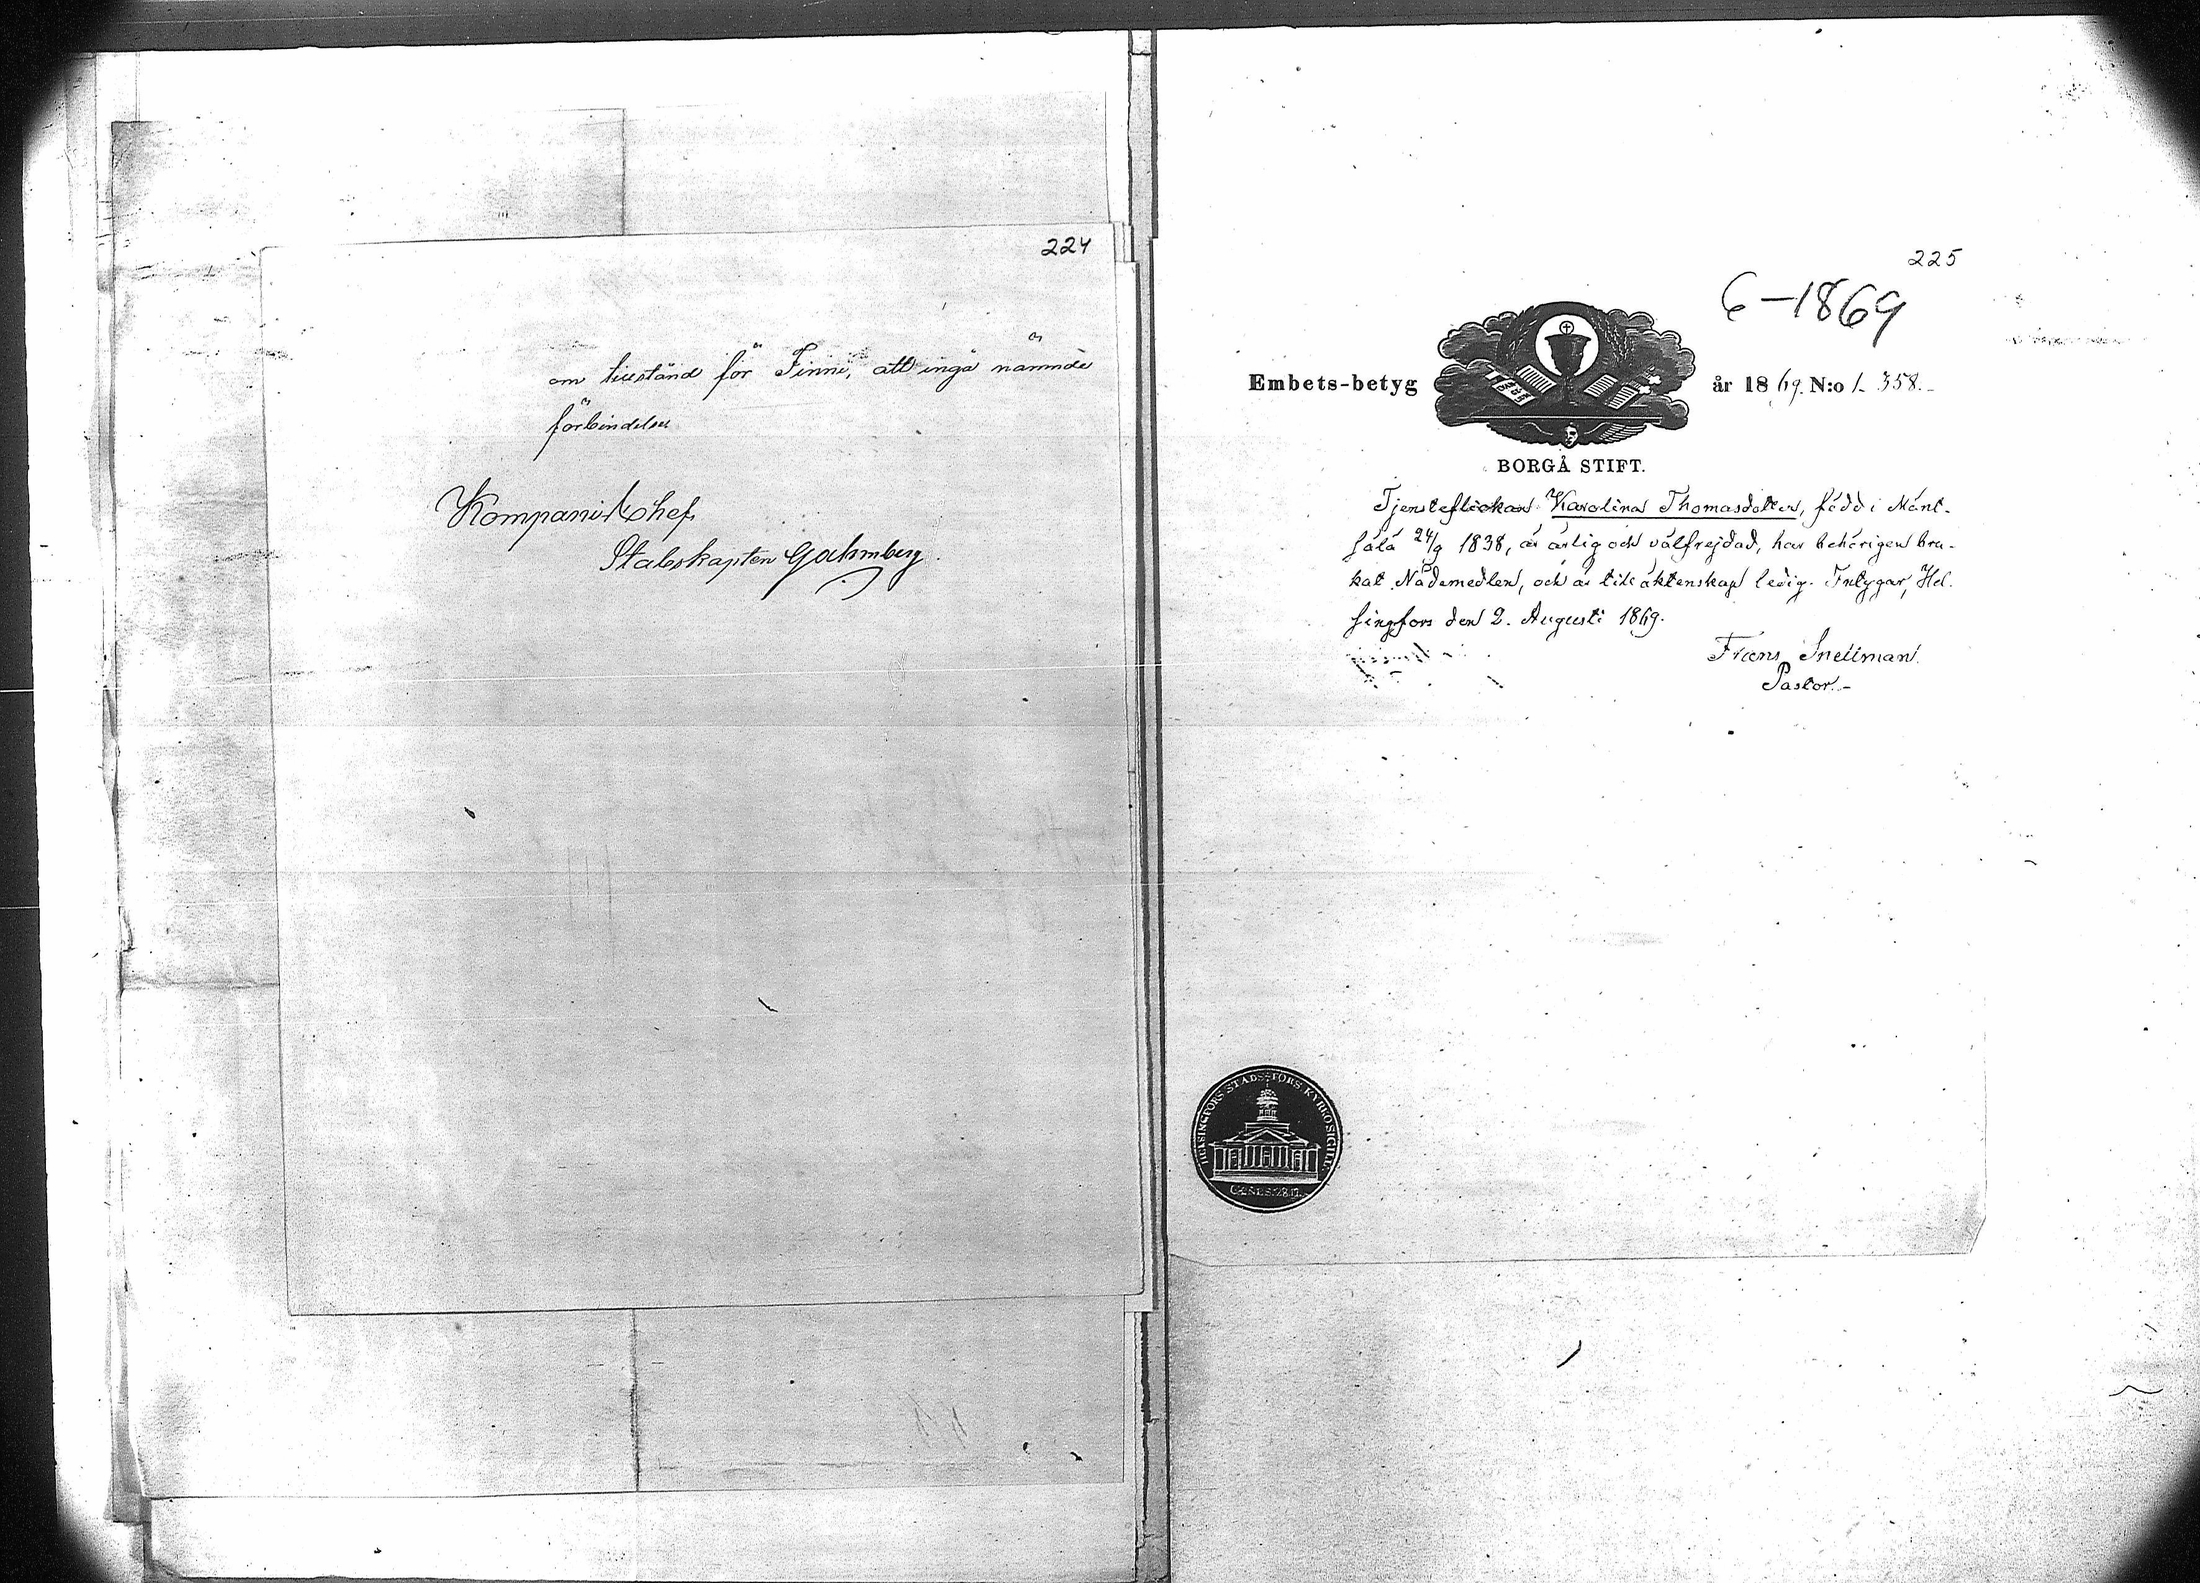 224
om tillstånd för Finne, att ingå nämnde
förbindelse
Kompani Chef,
Stabskapten Gahmberg.
225
6-1869
Embets-betyg år 1869. N:o 1358.-
BORGÅ STIFT.
Tjensteflickan Karolina Thomasdotter, född i Mänt-
sälä 24/9 1838, är ärlig och välfrejdad, har behörigen bru-
kat Nådemedlen, och är till äktenskap ledig. Intygar, Hel-
singfors den 2. Augusti 1869.
Frans Snellman.
Pastor.-
HELSINGFORS STADS FÖRS. KYRKOSIGILL.
GENES: 28.17.